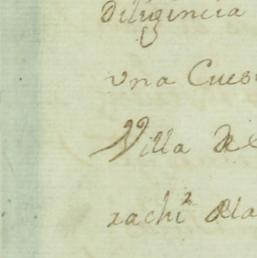 diligencia
una Cues
Villa de
rachi² dela